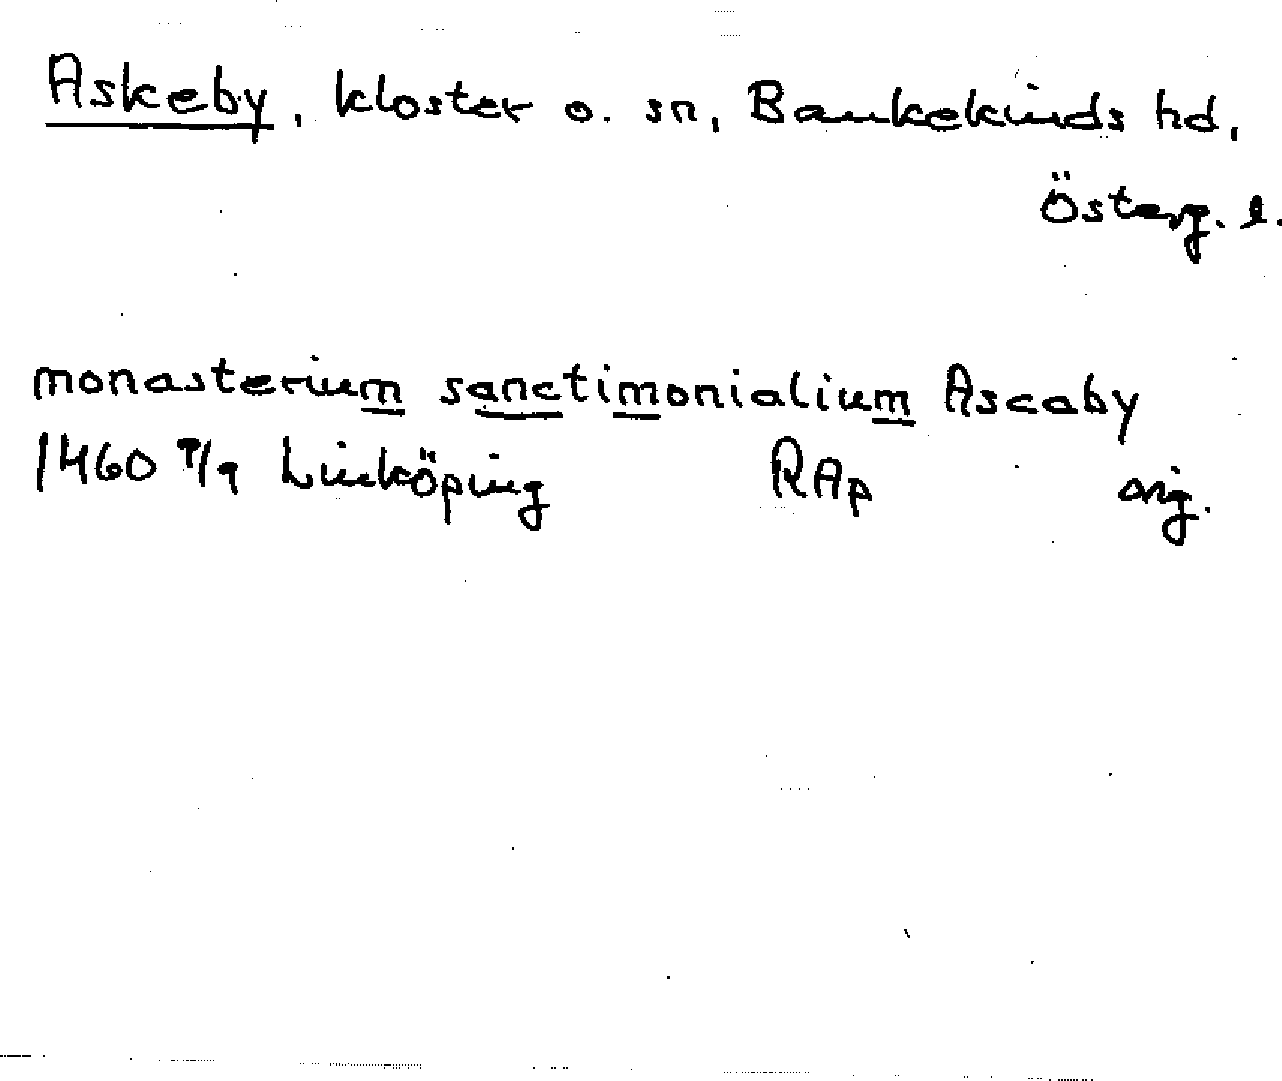 Askeby, kloster o. sn, Bankekinds hd,
Österg. l.
monasterium sanctimonialium Ascaby
1460 9/9 Linköping RAp orig.